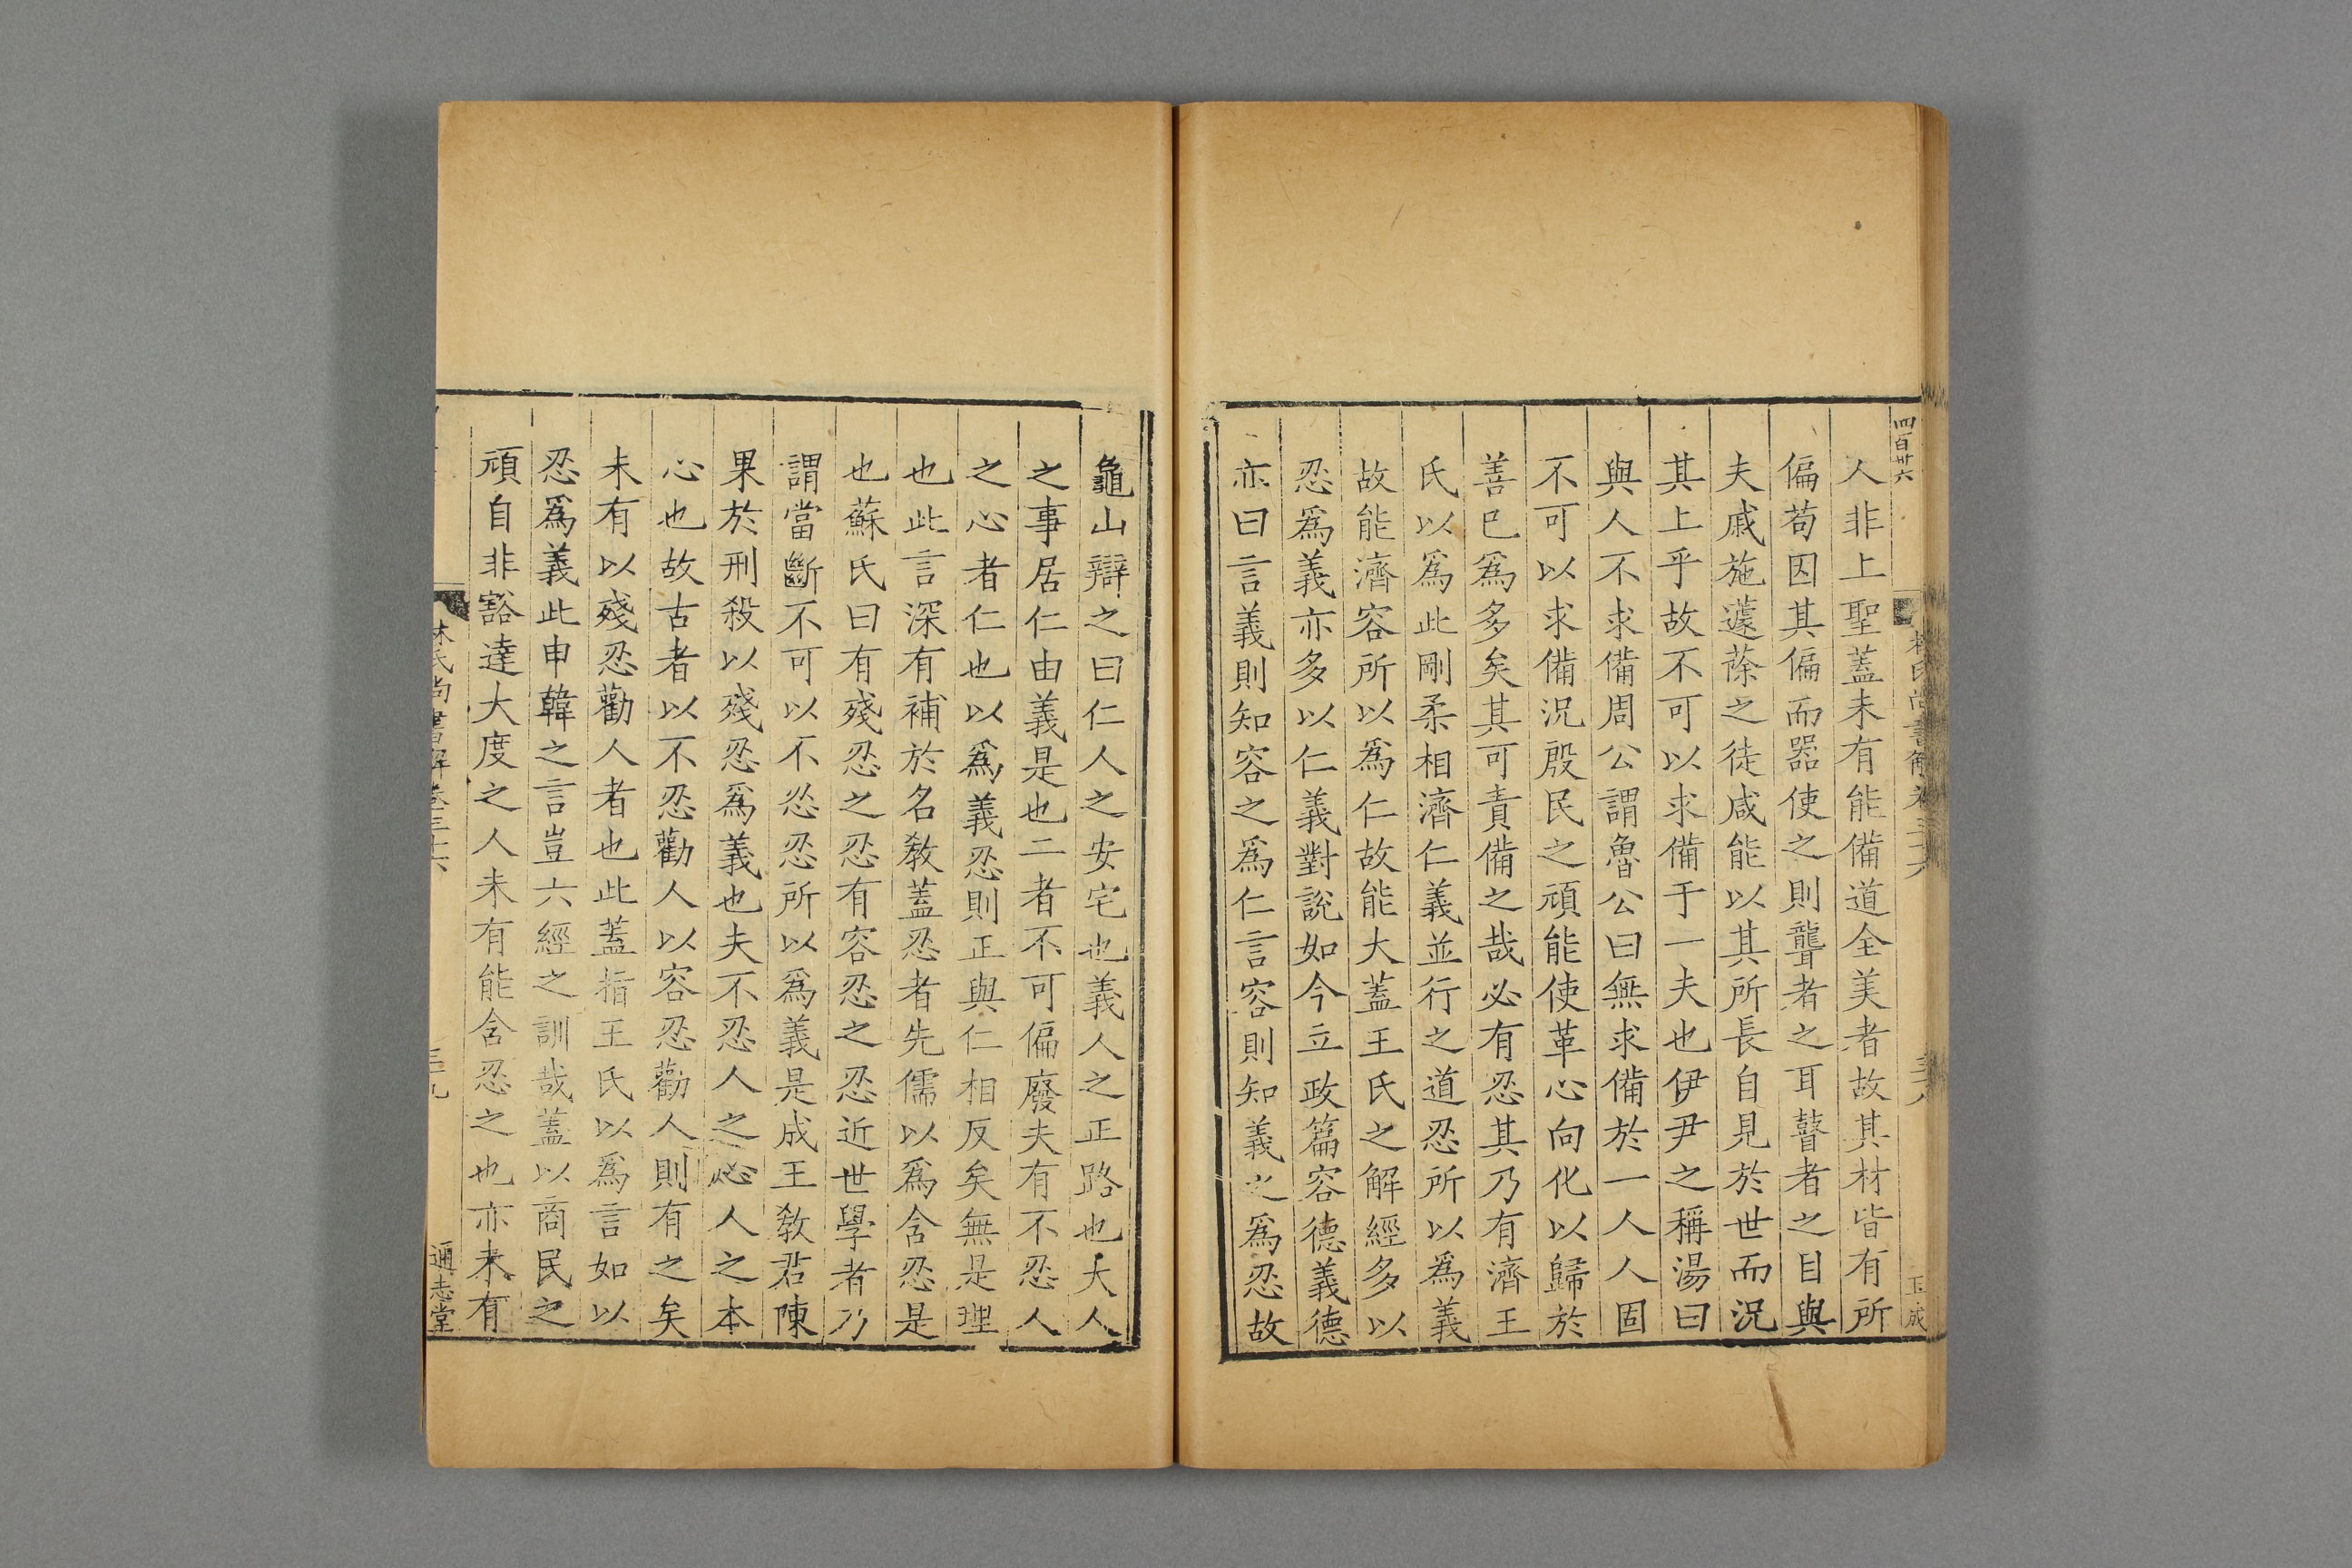 四百卅六
林氏尚書解卷三十六
三十八
人非上聖蓋未有能備道全美者故其材皆有所
偏苟因其偏而器使之則聾者之耳瞽者之目與
夫戚施蘧蒢之徒咸能以其所長自見於世而況
其上乎故不可以求備于一夫也伊尹之稱湯曰
與人不求備周公謂魯公曰無求備於一人人固
不可以求備況殷民之頑能使革心向化以歸於
善已為多矣其可責備之哉必有忍其乃有濟王
氏以為此剛柔相濟仁義並行之道忍所以為義
故能濟容所以為仁故能大蓋王氏之解經多以
忍為義亦多以仁義對說如今立政篇容德義德
亦曰言義則知容之為仁言容則知義之為忍故
龜山辯之曰仁人之安宅也義人之正路也大人
之事居仁由義是也二者不可偏廢夫有不忍人
之心者仁也以為義忍則正與仁相反矣無是理
也此言深有補於名教蓋忍者先儒以為含忍是
也蘇氏曰有殘忍之忍有容忍之忍近世學者乃
謂當斷不可以不忍忍所以為義是成王教君陳
果於刑殺以殘忍為義也夫不忍人之心人之本
心也故古者以不忍勸人以容忍勸人則有之矣
未有以殘忍勸人者也此蓋指王氏以為言如以
忍為義此申韓之言豈六經之訓哉蓋以商民之
頑自非豁達大度之人未有能含忍之也亦未有
林氏尚書解卷三十六
三十九
通志堂